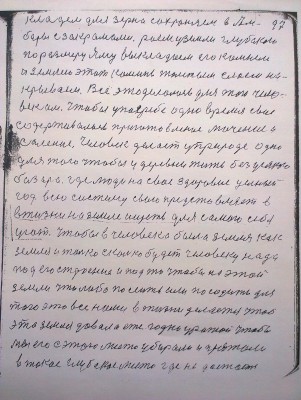 кладем для зерна сохраняем в Ам-
бары с закрамами, роем узкими глубокаю
по размеру Яму выкладаем его камнем
и Землею этот камень толстым слоем на-
крываем. Всё это делаем для этого чело-
веком. Чтобы у погребе одно время свое
содержималася приготовление моченье и
соленье. Человек делает у природе одно
для того чтобы у деревне жить без целого
базара. где люди на свое здоровье целый
год всю систему свою представляют в
в жизни на земле ищеть для самого себя
уют. Чтобы в человека была земля как
земля и только сколько будет человеку надо
под его стройния и под то чтобы на этой
земли что либо посеять или посадить для
того это все нами в жизни делается чтоб
эта земля давала ежегодно урожай чтобы
мы его с этого место убирали и хранили
в такое глубокое место где не достает